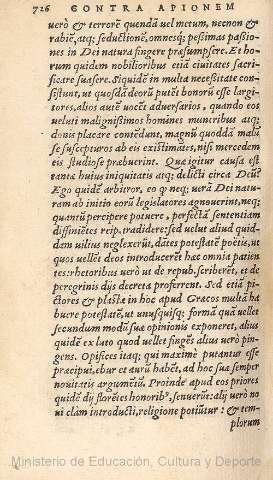 726 CONTRA APIONEM
uerò & terrorẽ quendã uel metum, necnon &
rabiẽ, atq; seductionẽ, omnesq; pessimas passio
nes in Dei natura fingere præsumpsere. Et ho-
rum quidem nobilioribus etiã ciuitates sacri-
ficare suasere. Siquidẽ in multa necessitate con-
sistunt, ut quosdã deorũ putẽt bonorũ esse largi
tores, alios autẽ uocẽt aduersarios, quando eos
ueluti malignissimos homines muneribus atq;
donis placare contẽdunt, magnũ quoddã malũ
se suscepturos ab eis existimãtes, nisi mercedem
eis studiose præbuerint. Quæ igitur causa est
tantæ huius iniquitatis atq; delicti circa Deũ?
Ego quidẽ arbitror, eo q neq; uerã Dei natu-
ram ab initio eorũ legislatores agnouerint, neq;
quantũ percipere potuere, perfectã sententiam
diffinietes reip. tradidere: sed uelut aliud quid-
dam uilius neglexerũt, dãtes potestatẽ poëtis, ut
quos uellẽt deos introducerẽt hæc omnia patien
tes: rhetoribus uerò ut de repub. scriberẽt, et de
peregrinis dijs decreta proferrent. Sed etiã pi-
ctores & plastæ in hoc apud Græcos multã ha
buere potestatẽ, ut unusquisq; formã quã uellet
secundum modũ suæ opinionis exponeret, alius
quidẽ ex luto quod uellet fingẽs alius uerò pin-
gens. Opifices itaq; qui maximè putantur esse
præcipui, ebur et aurũ habẽt, ad hoc sua semper
nouitatis argumẽtũ. Proinde apud eos priores
quidẽ dij florẽtes honorib⁹, senuerũt: alij uerò no
ui clam introducti, religione potiũtur: & tem
plorum
Ministerio de Educación, Cultura y Deporte